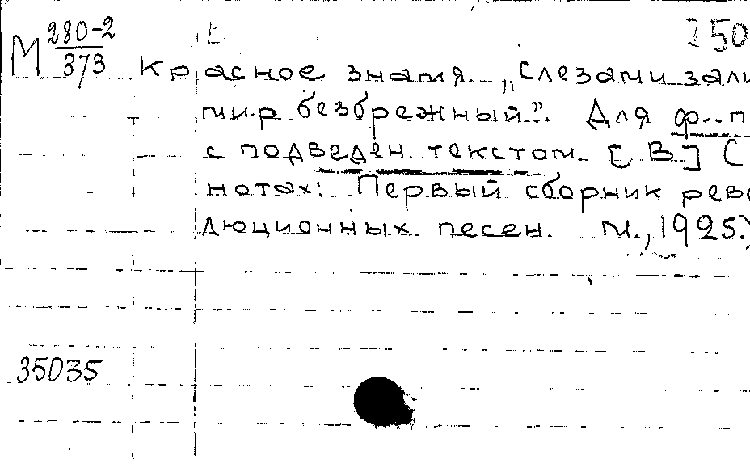 М 280-2/373
250
Красное знамя. „Слезами зали
мир безбрежный". Для ф.-п
с подведен. текстом. [В.] (
нотах: Первый сборник рево
люционных песен. М., 1925.)
35035